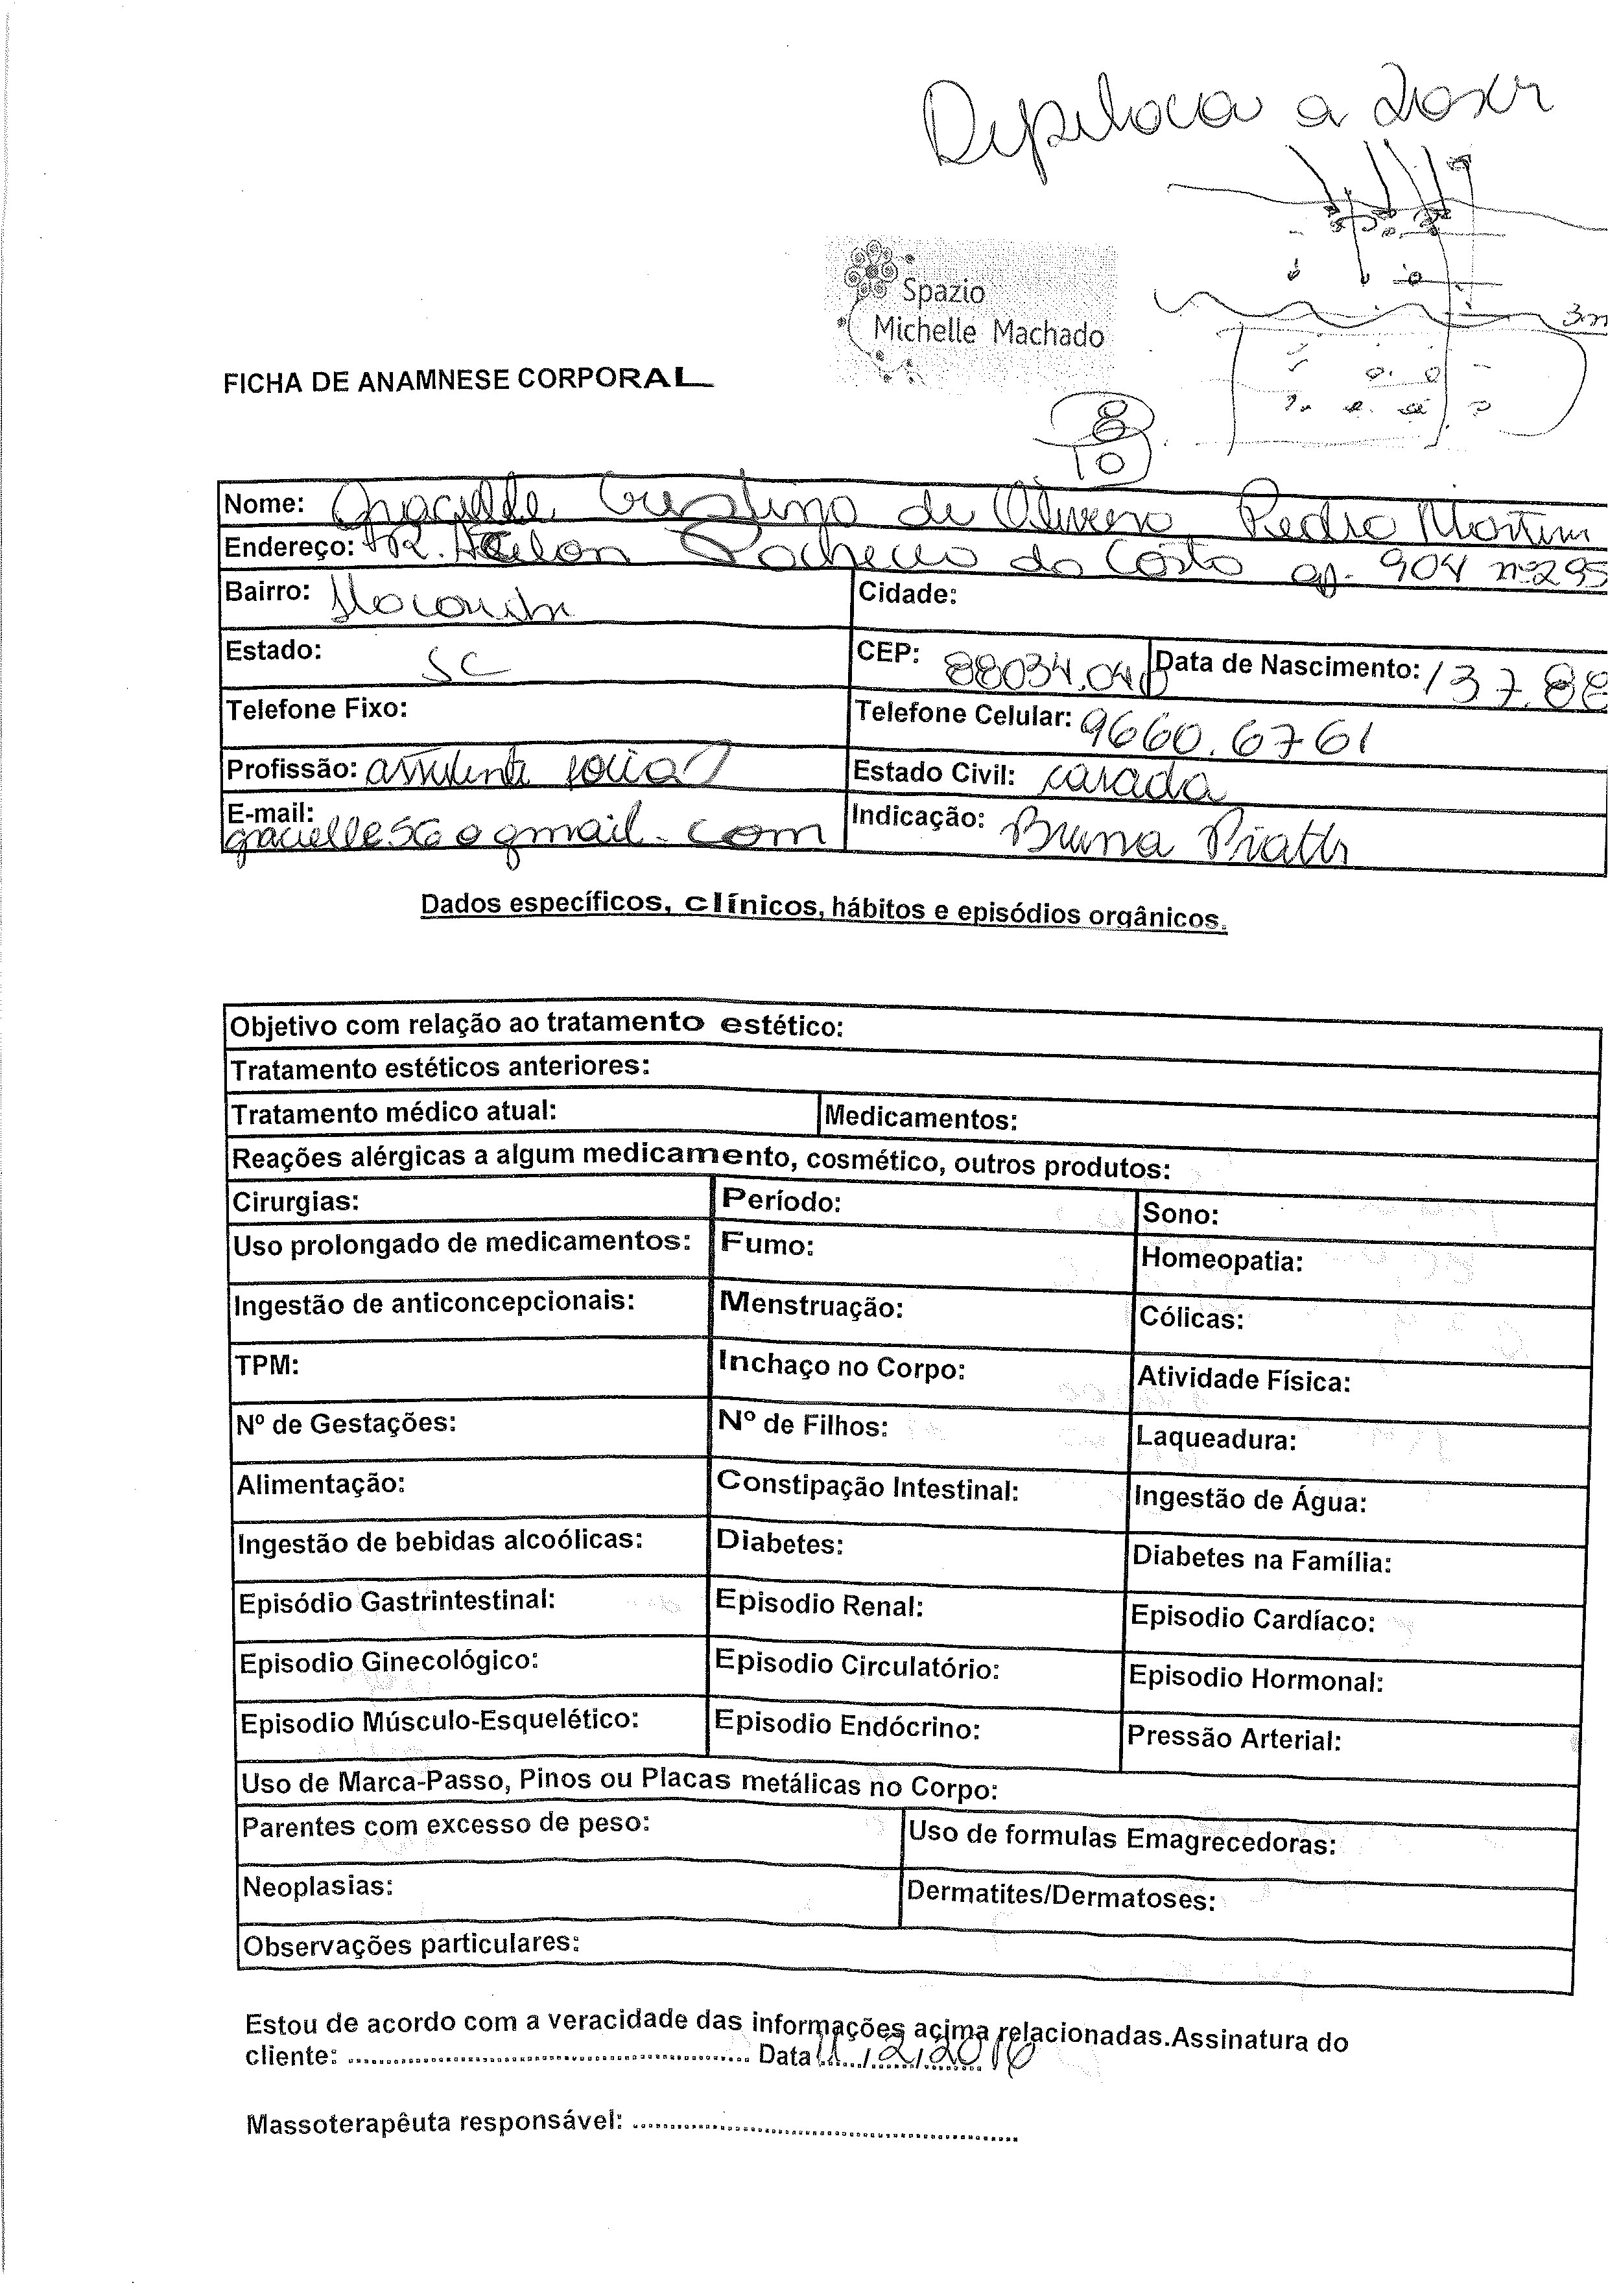 Depilaca a Laser
Spazio
Michelle Machado
3m
FICHA DE ANAMNESE CORPORAL
8
10
Nome: Gracielle Cristina de Oliveira Pedro Martins
Endereço: R. Pacheco da Costa ap. 904 nº 295
Bairro: Itacorubi Cidade:
Estado: SC CEP: 88034.040 Data de Nascimento: 13.7.88
Telefone Fixo: Telefone Celular: 9660.6761
Profissão: assistente social Estado Civil: casada
E-mail: Indicação: Bruna Piatti
gracielle56@gmail.com
Dados específicos, clínicos, hábitos e episódios orgânicos.
Objetivo com relação ao tratamento estético:
Tratamento estéticos anteriores:
Tratamento médico atual: Medicamentos:
Reações alérgicas a algum medicamento, cosmético, outros produtos:
Cirurgias: Período: Sono:
Uso prolongado de medicamentos: Fumo: Homeopatia:
Ingestão de anticoncepcionais: Menstruação: Cólicas:
TPM: Inchaço no Corpo: Atividade Física:
Nº de Gestações: Nº de Filhos: Laqueadura:
Alimentação: Constipação Intestinal: Ingestão de Água:
Ingestão de bebidas alcoólicas: Diabetes: Diabetes na Família:
Episódio Gastrintestinal: Episodio Renal: Episodio Cardíaco:
Episodio Ginecológico: Episodio Circulatório: Episodio Hormonal:
Episodio Músculo-Esquelético: Episodio Endócrino: Pressão Arterial:
Uso de Marca-Passo, Pinos ou Placas metálicas no Corpo:
Parentes com excesso de peso: Uso de formulas Emagrecedoras:
Neoplasias: Dermatites/Dermatoses:
Observações particulares:
Estou de acordo com a veracidade das informações acima relacionadas.Assinatura do
cliente: ........................................ Data 11/2/2016
Massoterapêuta responsável: ........................................